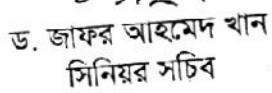 ড. জাফর আহমেদ খান
সিনিয়র সচিব